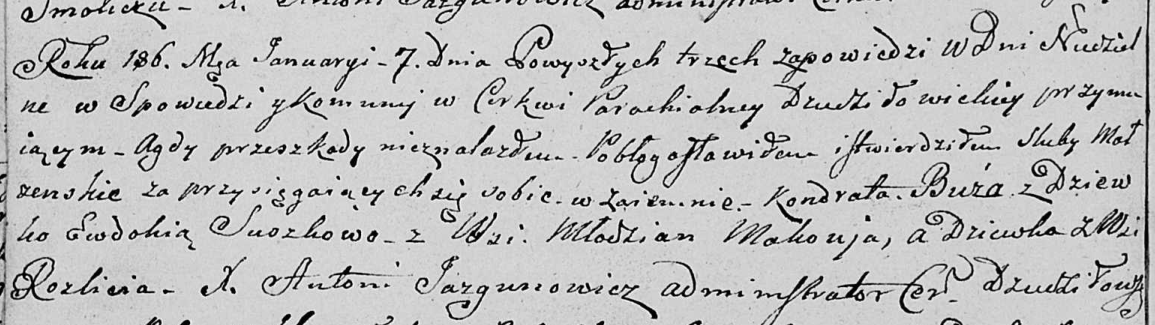 Smolicza - X. Antoni Jazgunowicz administrator
Roku 186. Mca Januaryi - 7. Dnia Powyszłych trzech zapowiedzi w Dni Niedziel
ne w Spowiedzi y komunij w Cerkwi Parachialney Dziedziłowickiey przymu
iącym - Agdy przeszkody nieznalazłem - Pobłogosławiłem istwierdziłem sluby Mał
zenskie za przysięgaiących się sobie - wzaiemnie - Kondrata Buża z Dziew
ko Ewdokią Suszkowo - z Wsi. Młodzian Makouja, a Dziewka z Wsi
Rozlicia - X. Antoni Jazgunowicz administrator Cer. Dziedziłowy